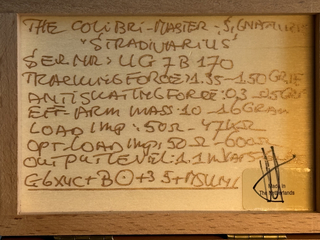 THE COLIBRI-MASTER-SIGNATURE
"STRADIVARIUS"
SER NR: UG 7B 170
TRACKING FORCE: 1.35-1.50 GR
ANTISKATING FORCE: 0.3
EFF ARM MASS: 10-16 GRAM
LOAD IMP: 50Ω-47KΩ
OPT-LOAD Imp: 50Ω-600Ω
OUTPUT LEVEL: 1.1
Made in
The Netherlands